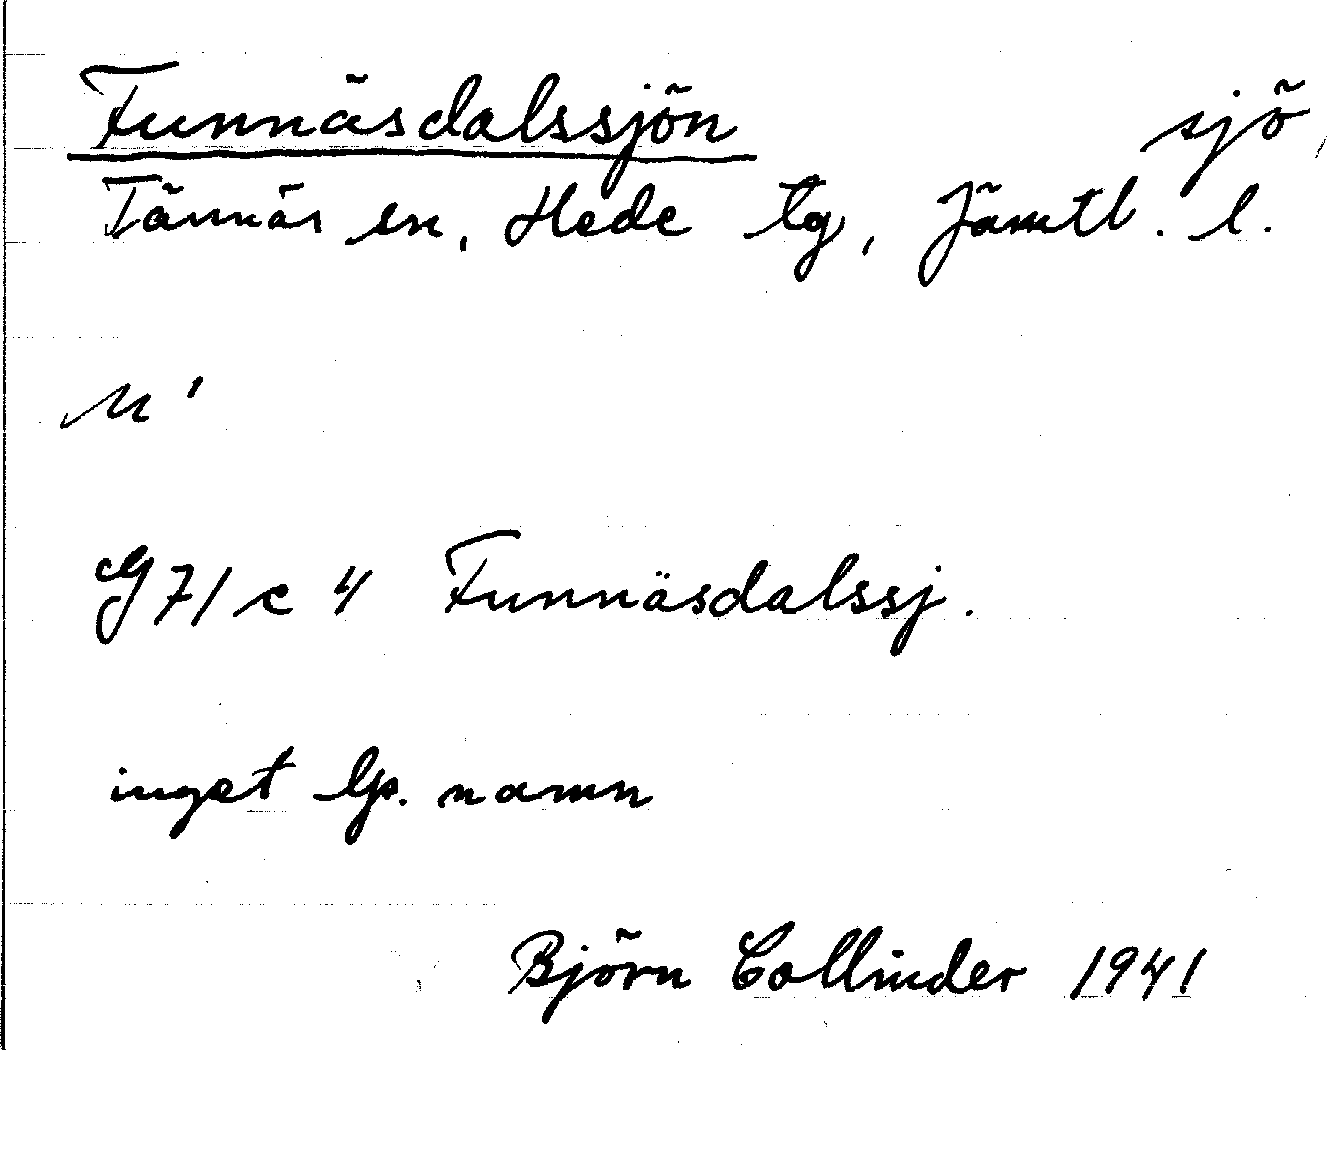 Funnäsdalssjön sjö
Tännäs sn, Hede tg, Jämtl. l.
G 71 c 4 Funnäsdalssj.
inget lp. namn
Björn Collinder 1941